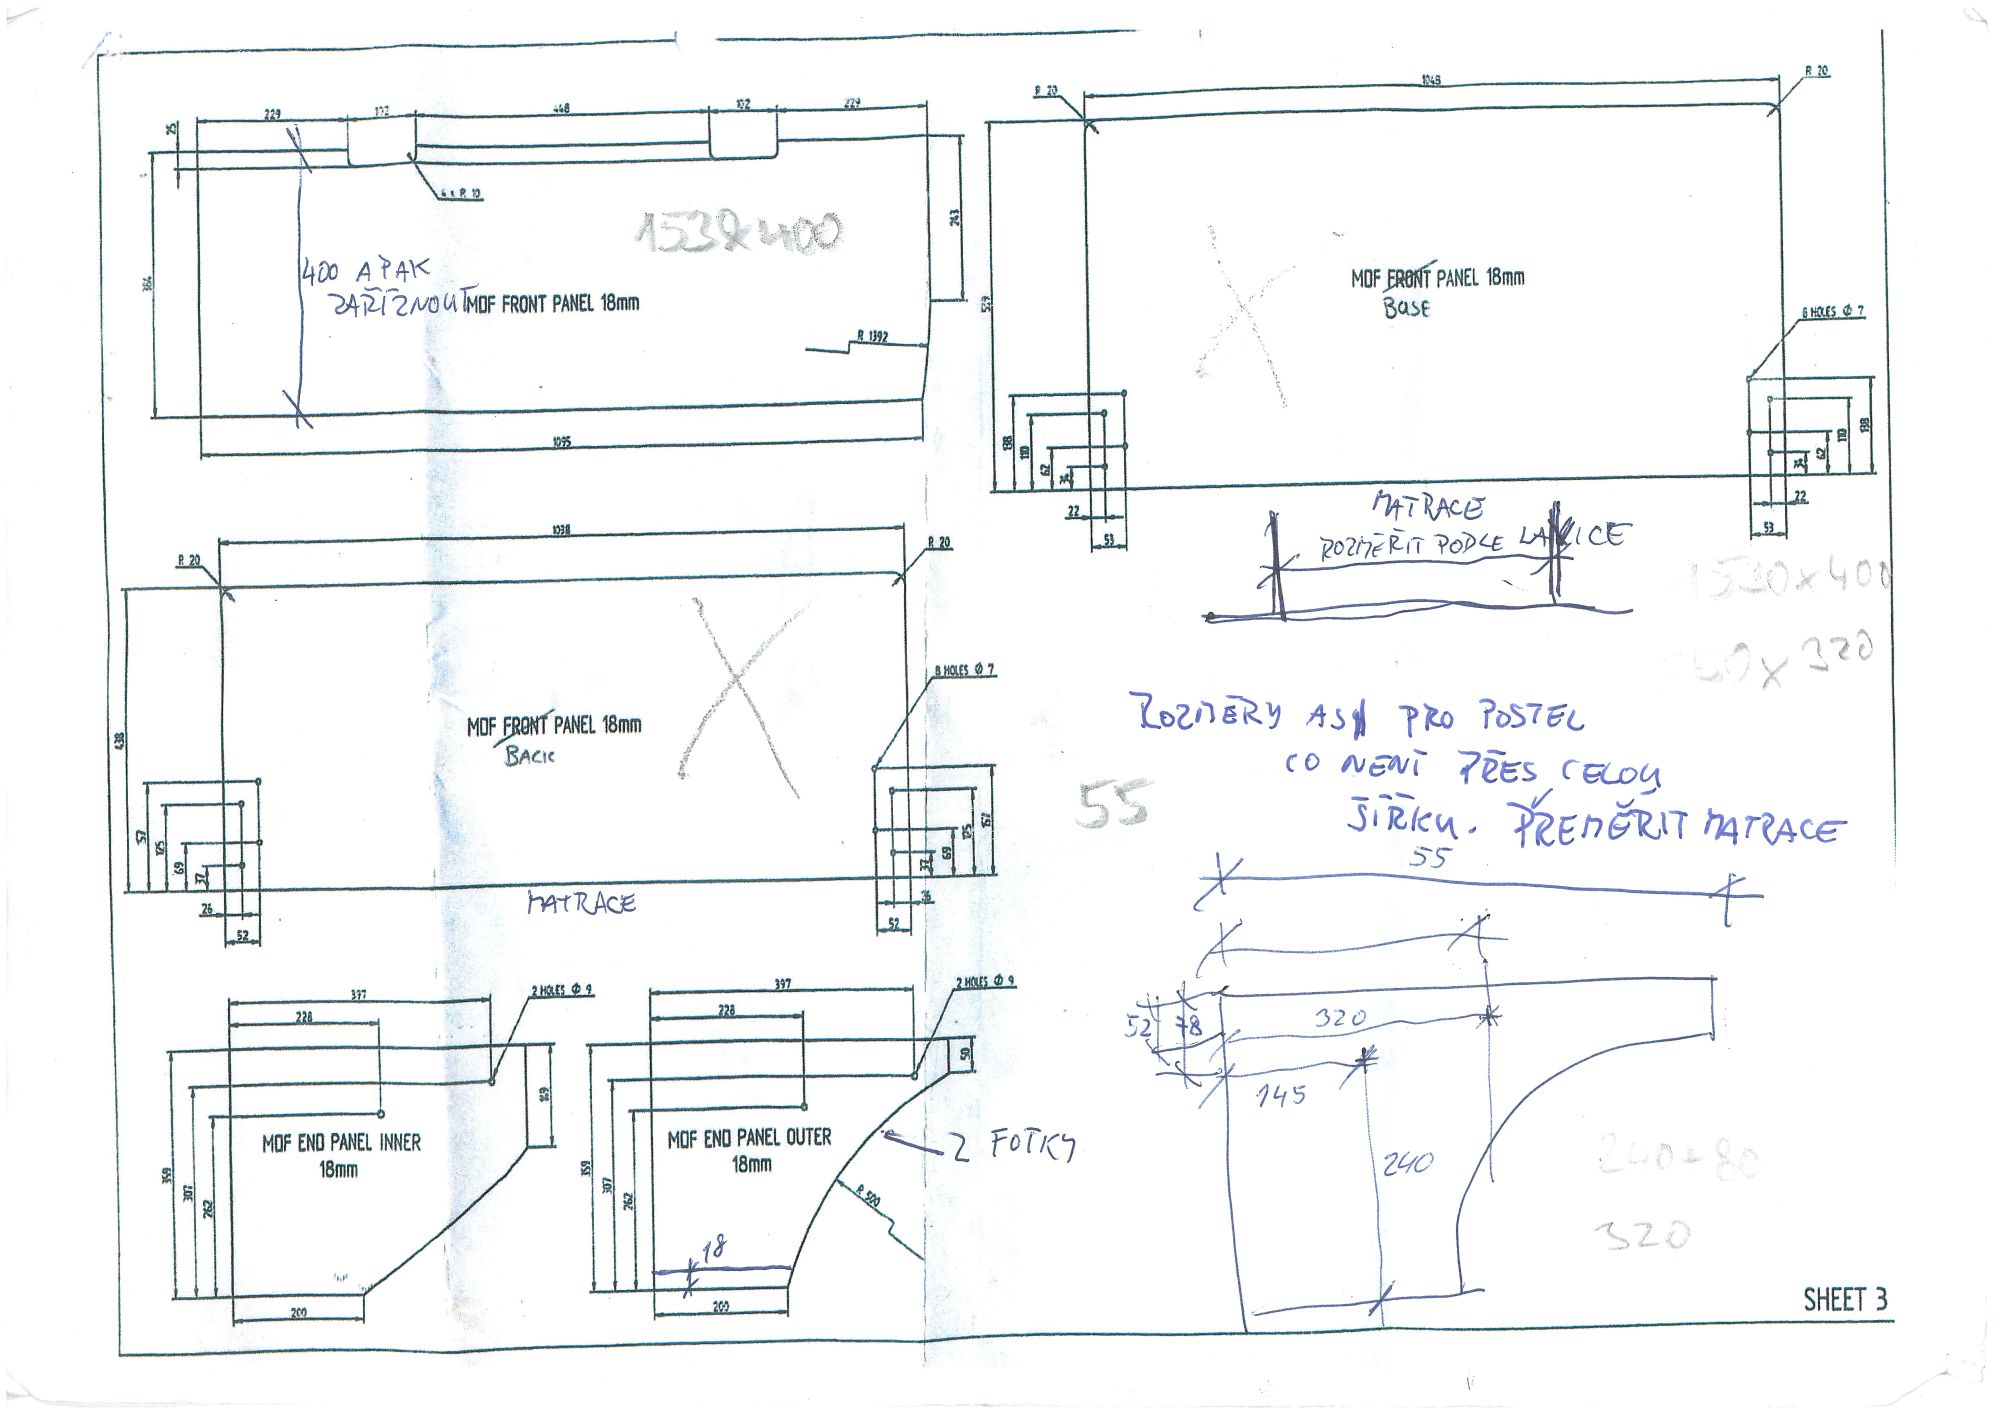 229
102
448
102
229
25
384
4 x R 10
243
1538x400
400 A PAK
ZAŘÍZNOUT
MDF FRONT PANEL 18mm
R 1392
1095
1048
R 20
R 20
529
MDF FRONT PANEL 18mm
BASE
6 HOLES Ø 7
138
110
62
34
22
53
34
62
110
138
22
53
MATRACE
ROZMĚŘIT PODLE LAVICE
1530x400
x 320
1038
R 20
R 20
438
MDF FRONT PANEL 18mm
BACK
8 HOLES Ø 7
157
125
69
37
26
52
37
69
125
157
26
52
MATRACE
55
ROZMĚRY ASI PRO POSTEL
CO NENÍ PŘES CELOU
ŠÍŘKU. PŘEMĚŘIT MATRACE
55
52
78
320
145
240
240+80
320
397
228
2 HOLES Ø 9
359
307
262
149
MDF END PANEL INNER
18mm
200
397
228
2 HOLES Ø 9
359
307
262
50
MDF END PANEL OUTER
18mm
2 FOTKY
R 500
18
200
SHEET 3